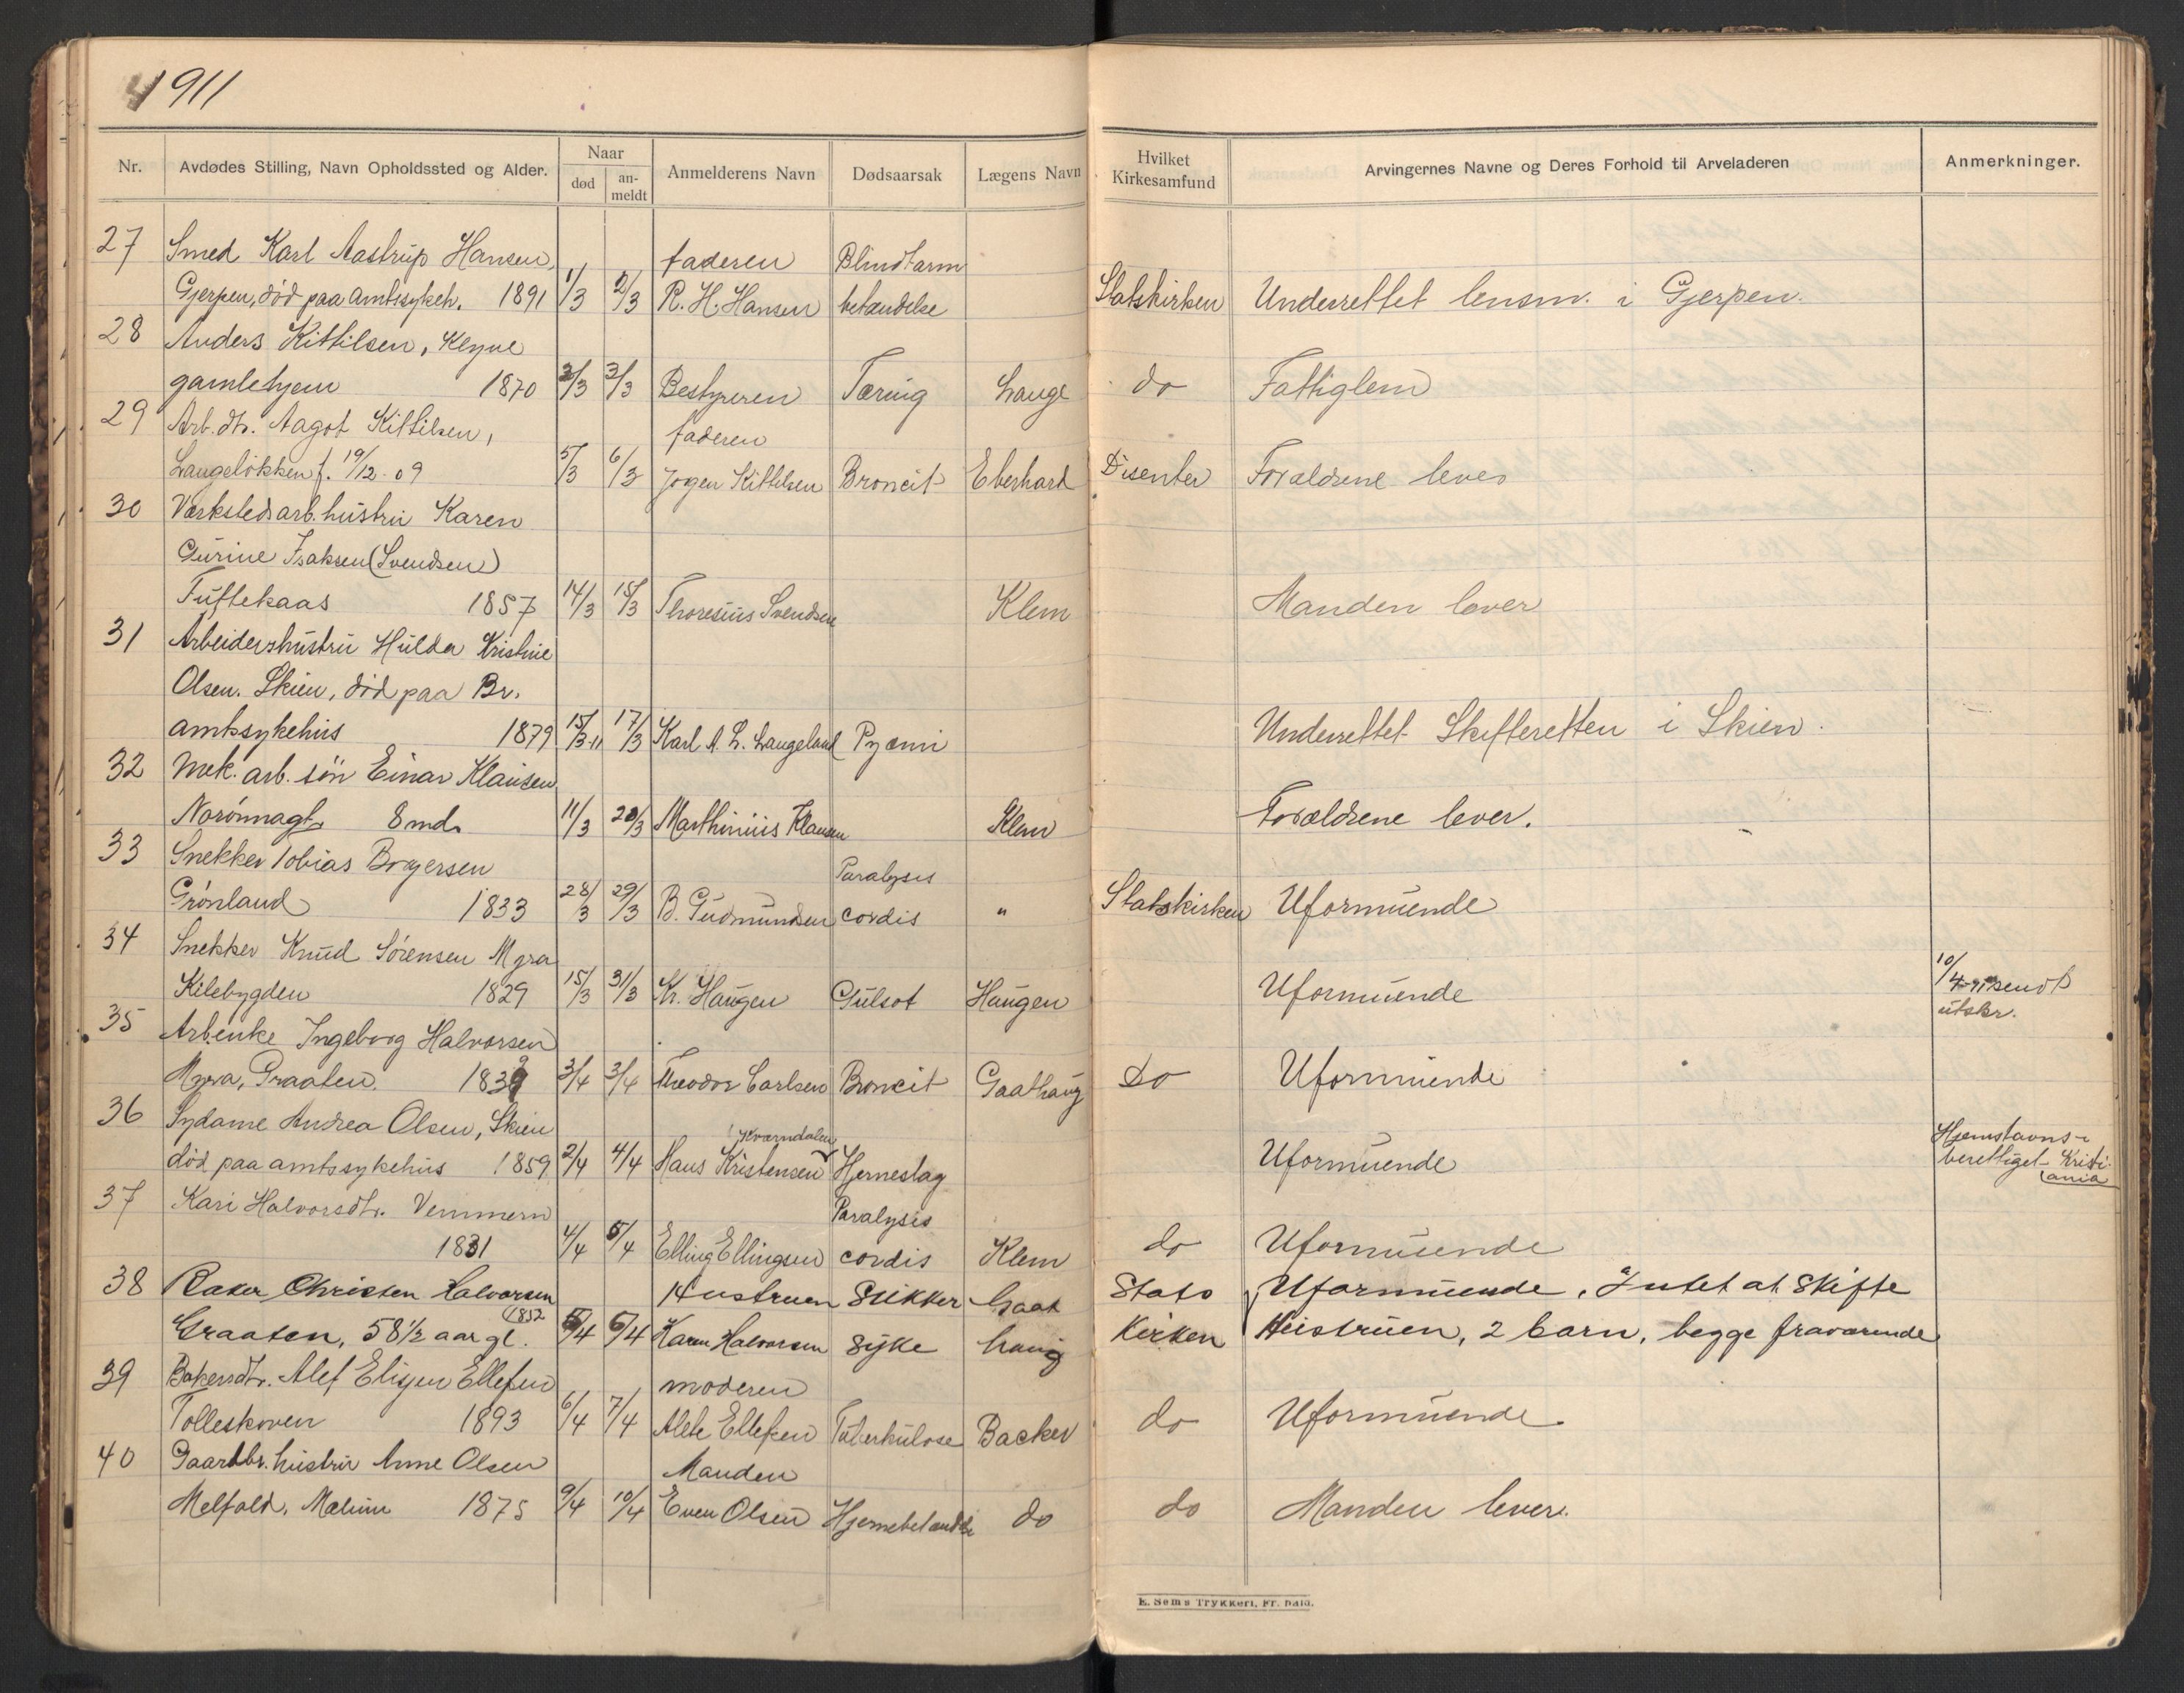 1911
Nr. Avdødes Stilling, Navn Opholdssted og Alder. Naar død an-meldt Anmelderens Navn Dødsaarsak Lægens Navn Hvilket Kirkesamfund Arvingernes Navne og Deres Forhold til Arveladeren Anmerkninger.
27 Smed Karl Aastrup Hansen, faderen Blindtarm
Gjerpen, død paa amtssykeh. 1891 1/3 2/3 R. H. Hansen betændelse Statskirken Underrettet lensm. i Gjerpen.
28 Anders Kittilsen, Klyve
gamlehjem 1870 2/3 3/3 Bestyreren Tæring Lange do Fattiglem
29 Arb. dtr. Aagot Kittilsen, faderen
Langeløkken f. 19/12-09 5/3 6/3 Jørgen Kittilsen Broncit Eberhard Disenter Forældrene lever
30 Værkstedsarb. hustru Karen
Gurine Isaksen (Svendsen)
Tuftekaas 1857 14/3 15/3 Thoresius Svendsen Klem Manden lever
31 Arbeidershustru Hulda Kristine
Olsen. Skien, død paa Br.
amtssykehus 1879 15/3-11 17/3 Karl A. L. Langeland Pyæmi Underrettet Skifteretten i Skien.
32 Mek. arb. søn Einar Klausen
Norønnagt. 8 md. 11/3 20/3 Marthinius Klausen Klem Forældrene lever.
33 Snekker Tobias Borgersen Paralysis
Grønland 1833 28/3 29/3 B. Gudmundsen cordis " Statskirken Uformuende
34 Snekker Knud Sørensen Myra
Kilebygden 1829 15/3 31/3 Kr. Haugen Gulsot Haugen Uformuende 10/4-11 sendt utskr.
35 Arb.enke Ingeborg Halvorsen
Myra, Graaten. 1839 3/4 3/4 Theodor Carlsen Broncit Gaathaug do Uformuende
36 Sydame Andrea Olsen, Skien Kværndalen
død paa amtssykehus 1859 2/4 4/4 Hans Kristensen Hjerneslag Uformuende Hjemstavns-berettiget Kristi-ania
37 Kari Halvorsdtr. Vemmern Paralysis
1831 4/4 5/4 Elling Ellingsen cordis Klem do Uformuende
38 Baker Christen Halvorsen Hustruen Sukker Gaat Stats Uformuende. Intet at Skifte
Graaten, 58 1/2 aar gl. (1852 5/4 6/4 Karen Halvorsen syke haug Kirken Hustruen, 2 barn, begge fraværende
39 Bakersdtr. Alef Elisjen Ellefsen moderen
Tolleskoven 1893 6/4 7/4 Alete Ellefsen Tuberkulose Backer do Uformuende.
40 Gaardbr. hustru Anne Olsen Manden
Melfald, Mælum 1875 9/4 10/4 Even Olsen Hjernebetændelse do do Manden lever.
E. Sem's Trykkeri, Fr. hald.